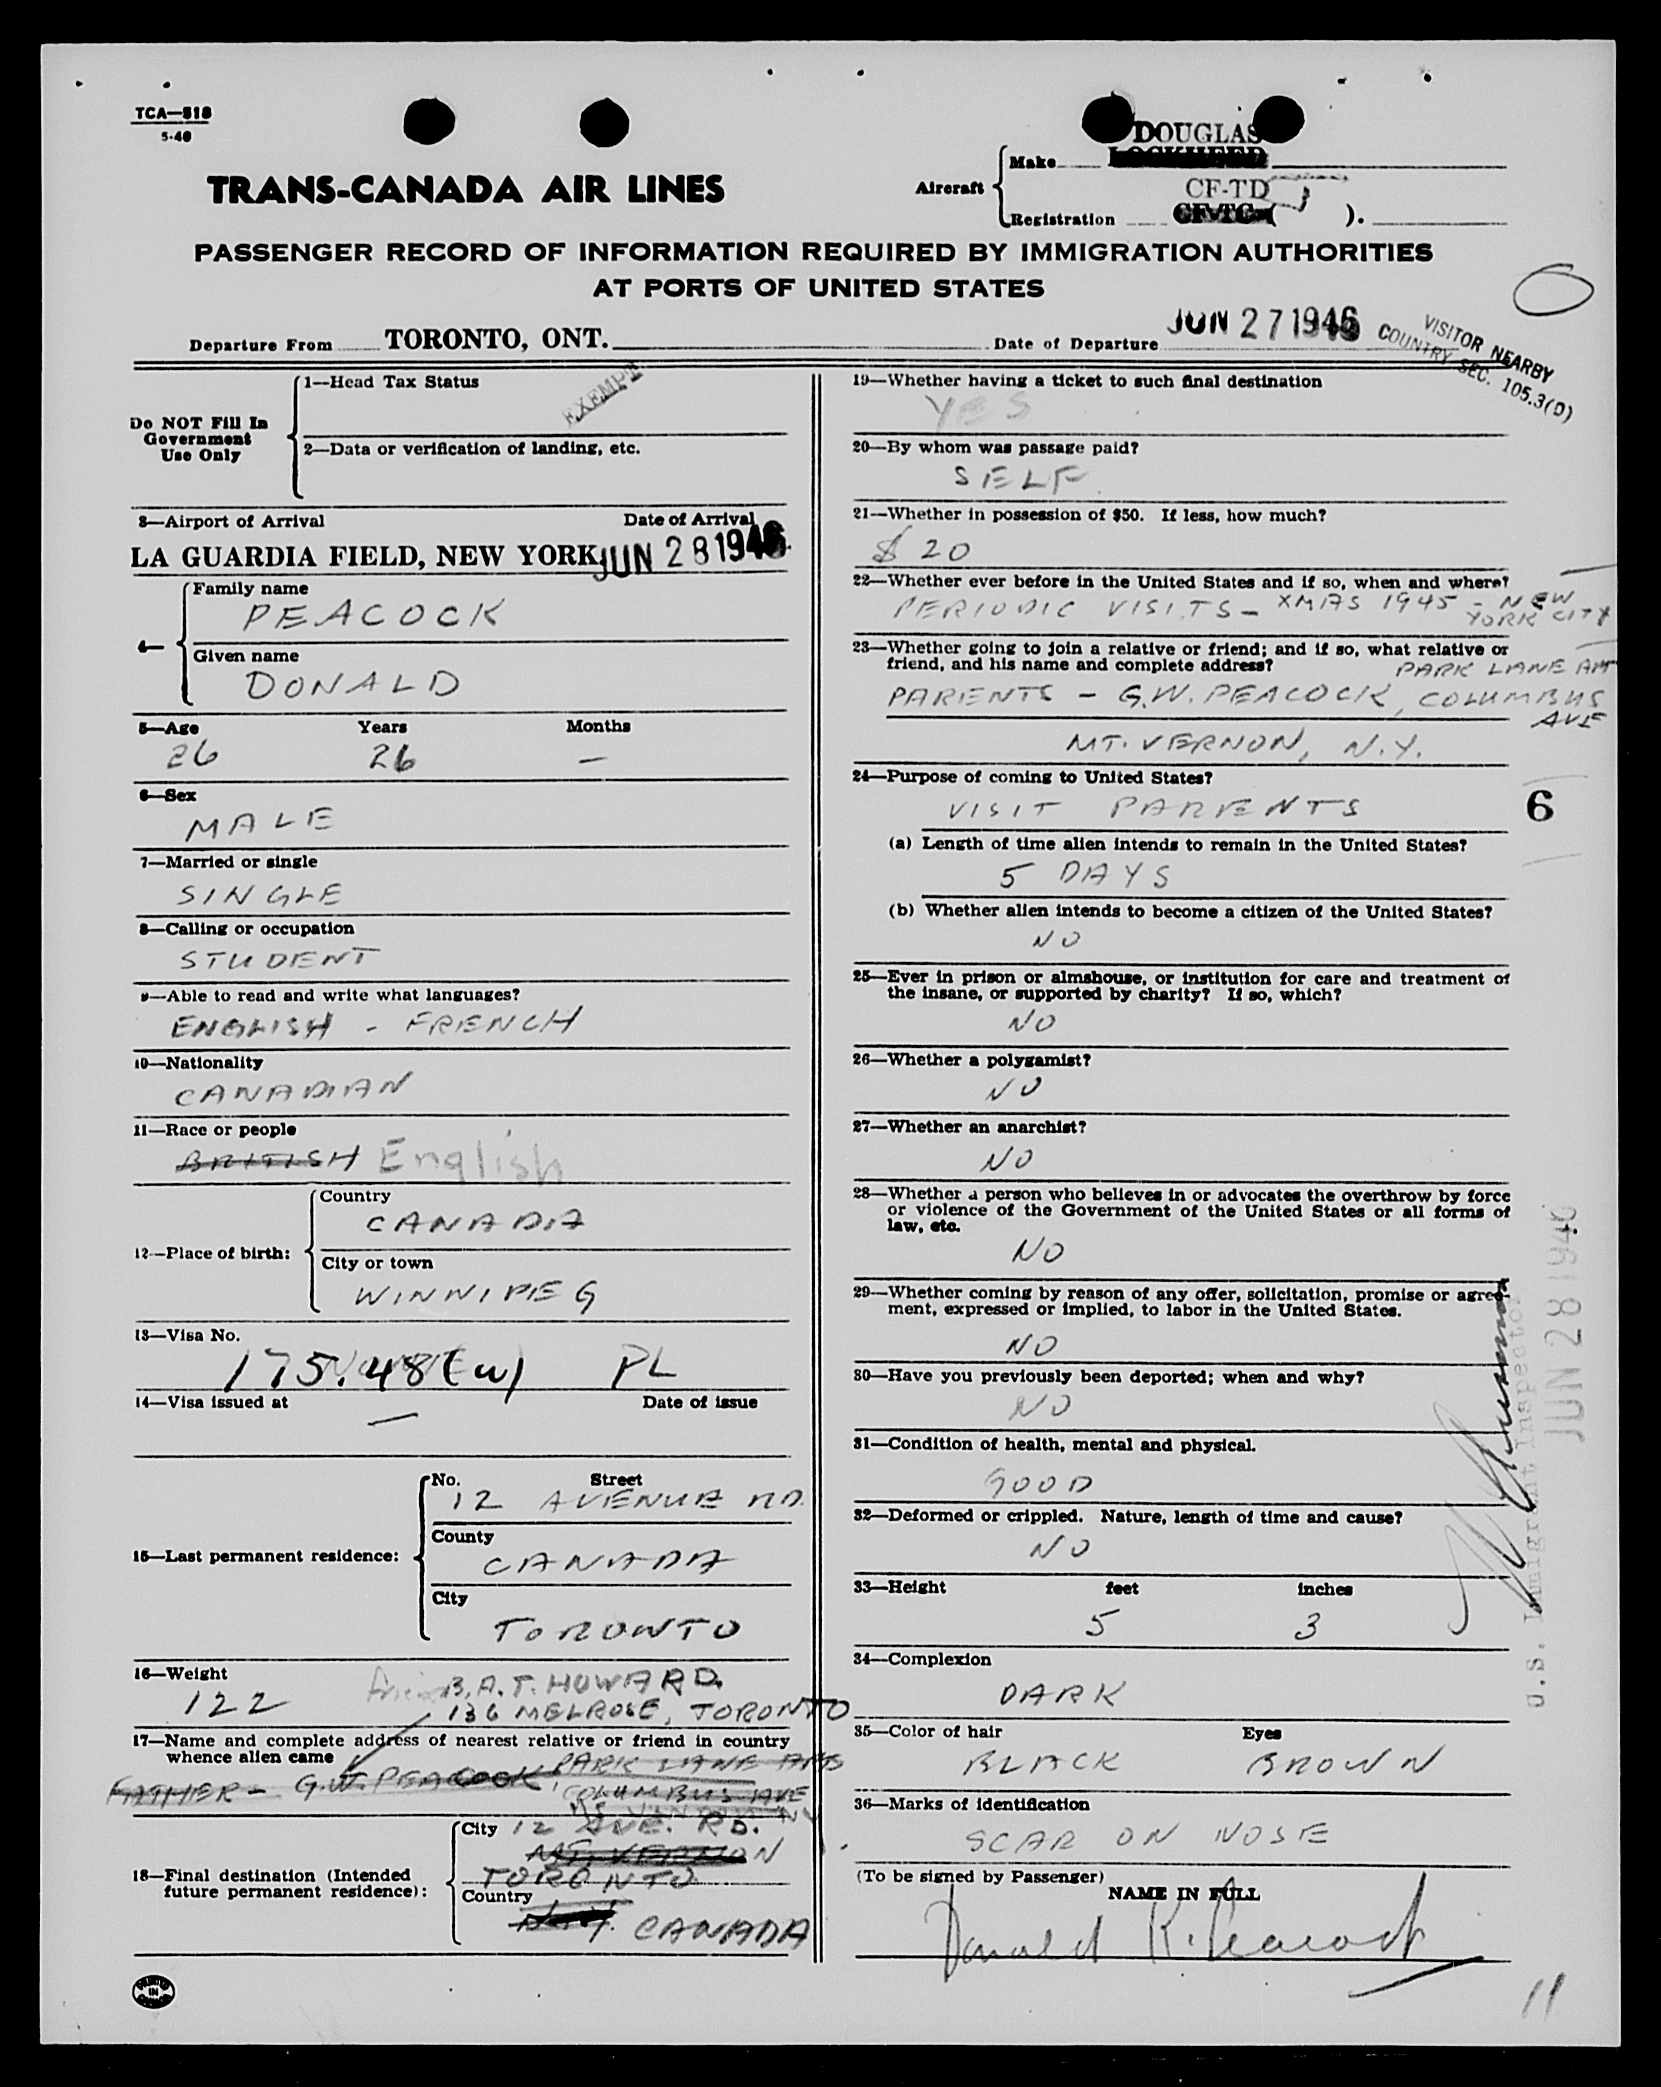 TCA—518
5-46
TRANS-CANADA AIR LINES
Aircraft
Make
DOUGLAS
LOCKHEED
Registration
CF-TD
CF-TC-( ).
PASSENGER RECORD OF INFORMATION REQUIRED BY IMMIGRATION AUTHORITIES
AT PORTS OF UNITED STATES
Departure From TORONTO, ONT.
Date of Departure JUN 27 1946
VISITOR NEARBY
COUNTRY SEC. 105.3(D)
Do NOT Fill In
Government
Use Only
1—Head Tax Status
EXEMPT
2—Data or verification of landing, etc.
3—Airport of Arrival Date of Arrival
LA GUARDIA FIELD, NEW YORK JUN 28 1946
4—
Family name
PEACOCK
Given name
DONALD
5—Age Years Months
26 26 —
6—Sex
MALE
7—Married or single
SINGLE
8—Calling or occupation
STUDENT
9—Able to read and write what languages?
ENGLISH - FRENCH
10—Nationality
CANADIAN
11—Race or people
BRITISH English
12—Place of birth:
Country
CANADA
City or town
WINNIPEG
13—Visa No.
175.48(w) PL
14—Visa issued at Date of issue
—
15—Last permanent residence:
No. Street
12 AVENUE RD.
County
CANADA
City
TORONTO
16—Weight
122
friend B.A.T. HOWARD
136 MELROSE, TORONTO
17—Name and complete address of nearest relative or friend in country
whence alien came
FATHER - G.W. PEACOCK, PARK LANE APTS
COLUMBUS AVE
18—Final destination (Intended
future permanent residence):
City 12 AVE. RD.
MT. VERNON
TORONTO
Country
N.Y. CANADA
19—Whether having a ticket to such final destination
YES
20—By whom was passage paid?
SELF
21—Whether in possession of $50. If less, how much?
$ 20
22—Whether ever before in the United States and if so, when and where?
PERIODIC VISITS - XMAS 1945 - NEW
YORK CITY
23—Whether going to join a relative or friend; and if so, what relative or
friend, and his name and complete address?
PARK LANE APT
PARENTS - G.W. PEACOCK, COLUMBUS
AVE
MT. VERNON, N.Y.
24—Purpose of coming to United States?
VISIT PARENTS
6
(a) Length of time alien intends to remain in the United States?
5 DAYS
(b) Whether alien intends to become a citizen of the United States?
NO
25—Ever in prison or almshouse, or institution for care and treatment of
the insane, or supported by charity? If so, which?
NO
26—Whether a polygamist?
NO
27—Whether an anarchist?
NO
28—Whether a person who believes in or advocates the overthrow by force
or violence of the Government of the United States or all forms of
law, etc.
NO
29—Whether coming by reason of any offer, solicitation, promise or agree-
ment, expressed or implied, to labor in the United States.
NO
30—Have you previously been deported; when and why?
NO
31—Condition of health, mental and physical.
GOOD
32—Deformed or crippled. Nature, length of time and cause?
NO
33—Height feet inches
5 3
34—Complexion
DARK
35—Color of hair Eyes
BLACK BROWN
36—Marks of identification
SCAR ON NOSE
(To be signed by Passenger)
NAME IN FULL
Donald K. Peacock
U.S. Immigrant Inspector
JUN 28 1946
11